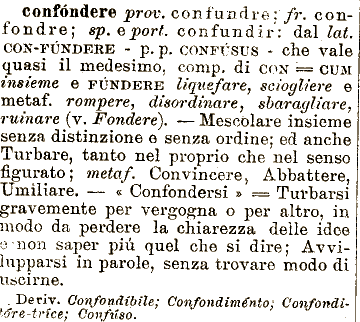 confóndere prov. confundre; fr. con-
fondre; sp. e port. confundir: dal lat.
CON-FÚNDERE - p. p. CONFÚSUS - che vale
quasi il medesimo, comp. di CON = CUM
insieme e FÚNDERE liquefare, sciogliere e
metaf. rompere, disordinare, sbaragliare,
ruinare (v. Fondere). — Mescolare insieme
senza distinzione o senza ordine; ed anche
Turbare, tanto nel proprio che nel senso
figurato; metaf. Convincere, Abbattere,
Umiliare. — « Confondersi » = Turbarsi
gravemente per vergogna o per altro, in
modo da perdere la chiarezza delle idee
e non saper piú quel che si dire; Avvi-
lupparsi in parole, senza trovare modo di
uscirne.
Deriv. Confondíbile; Confondiménto; Confondi-
tóre-tríce; Confúso.